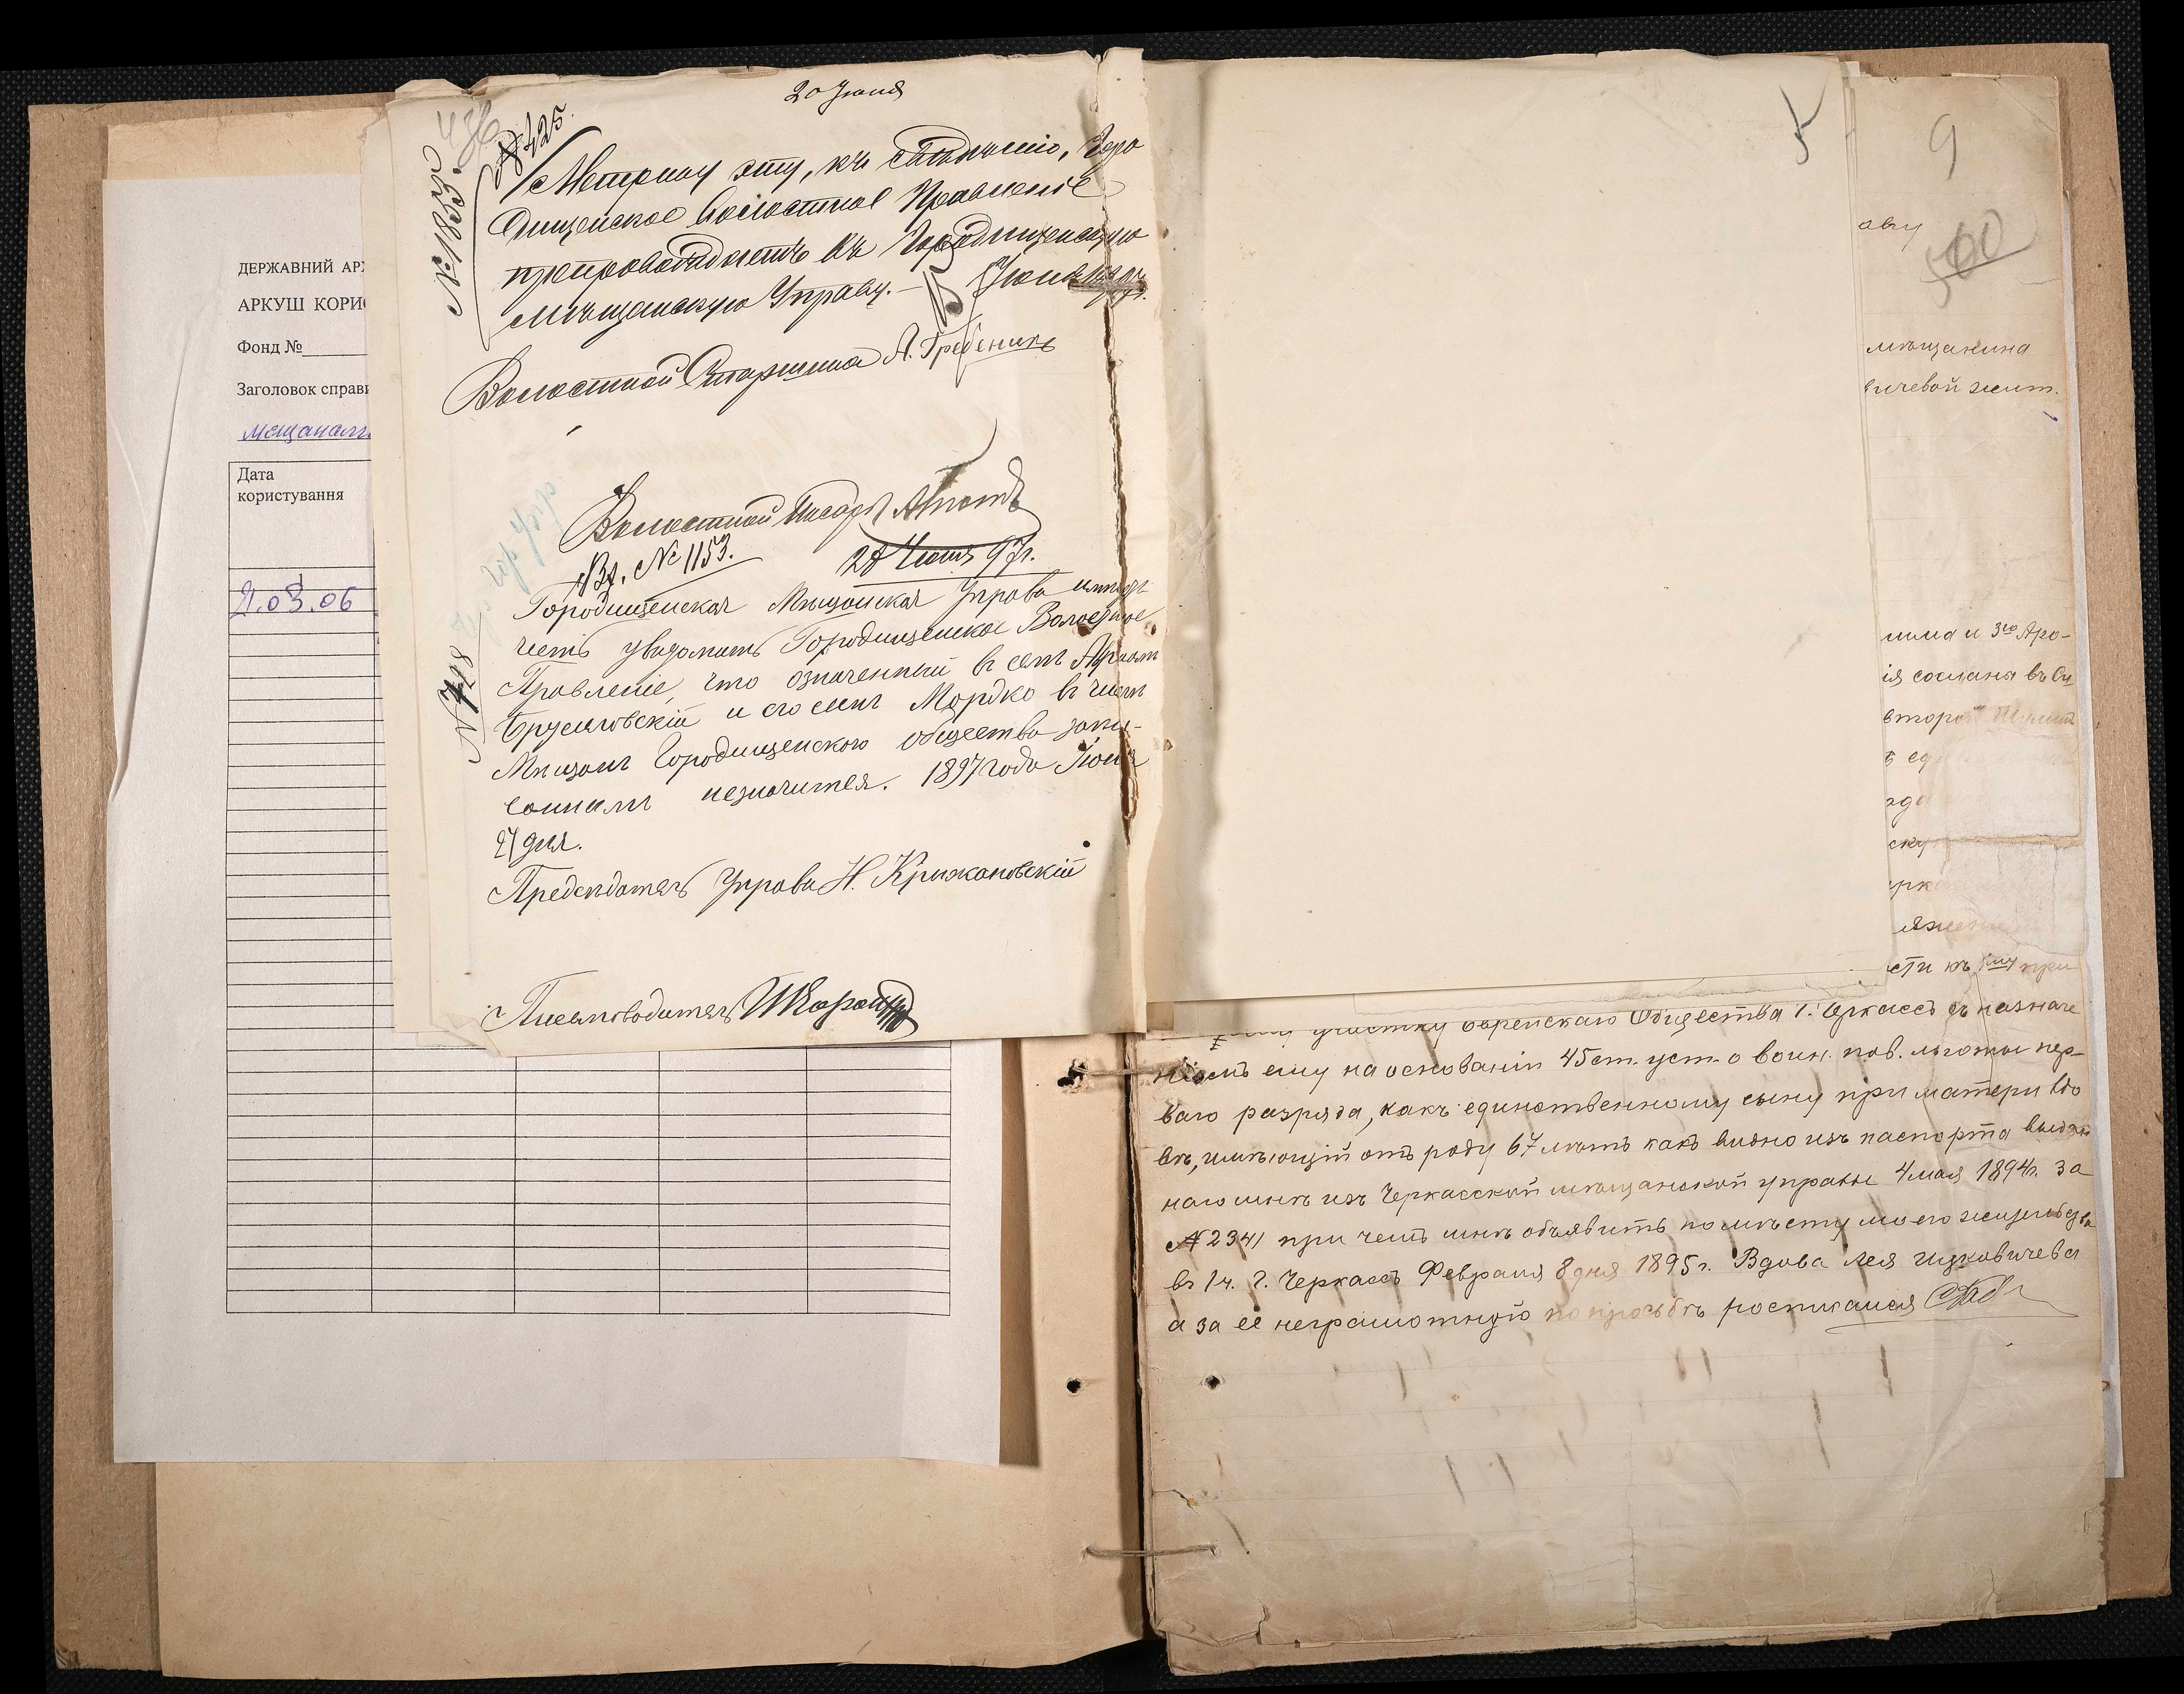 ДЕРЖАВНИЙ АР
АРКУШ КОРИ
Фонд №
Заголовок справ
мещанам
Дата
користування
21.03.06
20 Июня
436
№ 425
№ 1833
Метрику эту, къ сведенію, Горо
дищенское Волостное Правленіе
препровождаетъ въ Городищенскую
Мѣщанскую Управу. Июня
Волостной Старшина А. Гребеникъ
Волостной Писарь
Вх. № 1153. 28 Июня 97 г.
№ 728
Городищенская Мѣщанская Управа имѣетъ
честь увѣдомить Городищенское Волостное
Правленіе, что означенный въ семъ
Брусиловскій и его сынъ Мордко въ числѣ
Мѣщанъ Городищенского общества запи-
саннымъ незначится. 1897 года Июня
27 дня.
Предсѣдатель Управы Н. Крижановскій
Письмоводитель
5
9
аву
500
мѣщанина
вичевой жит.
мима и 3го Аро-
ія сослана въ Си
второй
ѣ ед
зда
ску
ерк
ляже
сти къ при
участку еврейскаго Общества г. Черкассъ съ назначе
ніемъ ему на основаніи 45 ст. уст. о воин. пов. льготы пер-
ваго разряда, какъ единственному сыну при матери вдо
вѣ, имѣющій отъ роду 67 лѣтъ какъ видно изъ паспорта выдан
наго мнѣ изъ Черкасской мѣщанской управы 4 мая 1894 г. за
№ 2341 при чемъ мнѣ объявить по мѣсту моего жительства
въ 1 ч. г. Черкассъ Февраля 8 дня 1895 г. Вдова Лея Ицковичева
а за её неграмотную по просьбѣ росписался